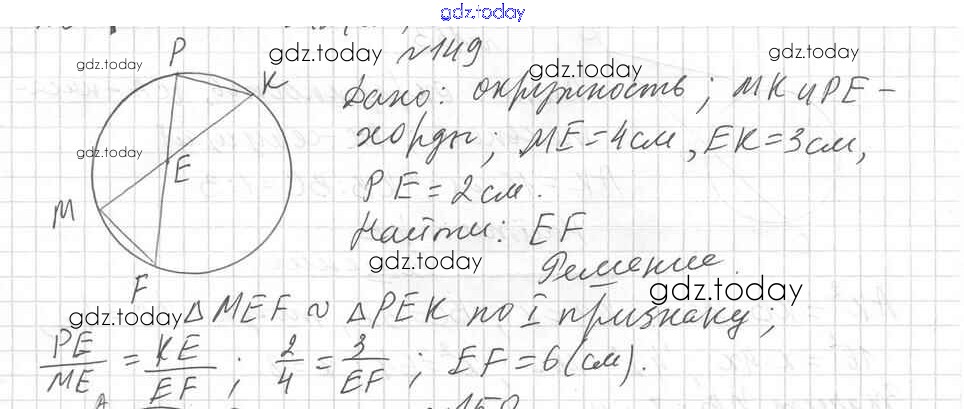 gdz.today
№149
gdz.today
gdz.today
gdz.today
gdz.today
P
K
E
M
F
gdz.today
Дано: окружность; MK и PE -
хорды; ME = 4 см, EK = 3 см,
PE = 2 см.
Найти: EF
gdz.today
Решение
gdz.today
gdz.today
△MEF ~ △PEK по I признаку;
PE/ME = KE/EF; 2/4 = 3/EF; EF = 6 (см).